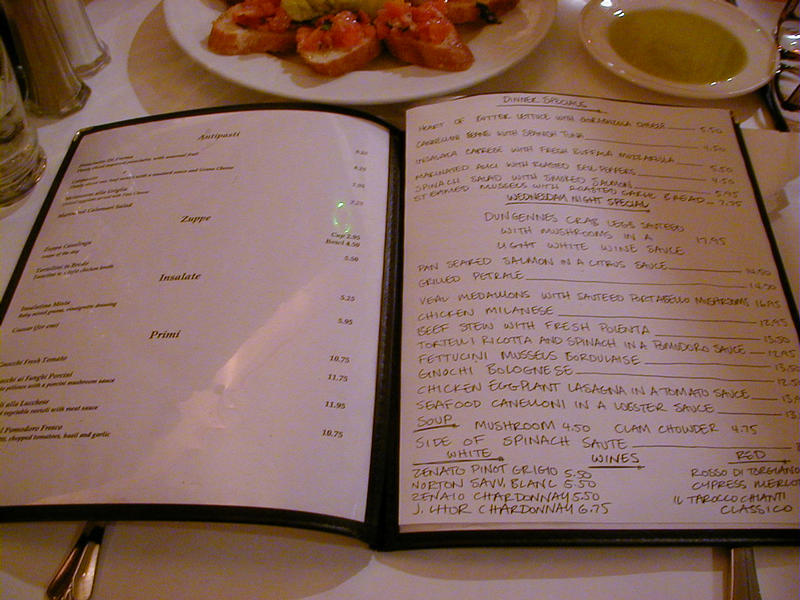 Antipasti
6.25
6.25
7.95
Melanzane alla Griglia
7.25
Marinated Calamari Salad
Zuppe
Zuppa Casalinga
Cup 2.95
soupe of the day
Bowl 4.50
Tortellini in Brodo
5.50
Tortellini in a light chicken broth
Insalate
Insalatina Mista
5.25
Baby mixed greens, vinaigrette dressing
Caesar (for one)
5.95
Primi
Gnocchi Fresh Tomato
10.75
ai Funghi Porcini
11.75
with a porcini mushroom sauce
alla Lucchese
11.95
vegetable ravioli with meat sauce
Pomodoro Fresco
10.75
chopped tomatoes, basil and garlic
DINNER SPECIALS
HEART OF BUTTER LETTUCE WITH GORGONZOLA CHEESE 5.50
CANNELLINI BEANS WITH SPANISH TUNA 4.50
INSALATA CAPRESE WITH FRESH BUFFALA MOZZARELLA 5.50
MARINATED ALICI WITH ROASTED BELL PEPPERS 4.50
SPINACH SALAD WITH SMOKED SALMON 5.95
STEAMED MUSSELS WITH ROASTED GARLIC BREAD 7.25
WEDNESDAY NIGHT SPECIAL
DUNGENNES CRAB LEGS SAUTEED
WITH MUSHROOMS IN A 17.95
LIGHT WHITE WINE SAUCE
PAN SEARED SALMON IN A CITRUS SAUCE 14.50
GRILLED PETRALE 14.50
VEAL MEDALLIONS WITH SAUTEED PORTABELLO MUSHROOMS 16.95
CHICKEN MILANESE 12.95
BEEF STEW WITH FRESH POLENTA 13.50
TORTELLI RICOTTA AND SPINACH IN A POMODORO SAUCE 12.95
FETTUCINI MUSSELS BORDULAISE 13.50
GNOCHI BOLOGNESE 12.50
CHICKEN EGGPLANT LASAGNA IN A TOMATO SAUCE
SEAFOOD CANELLONI IN A LOBSTER SAUCE
SOUP MUSHROOM 4.50 CLAM CHOWDER 4.75
SIDE OF SPINACH SAUTE
WHITE WINES RED
ZENATO PINOT GRIGIO 5.50 ROSSO DI TORGIANO
NORTON SAUV. BLANC 5.50 CYPRESS MERLOT
ZENATO CHARDONNAY 5.50 IL TAROCCO CHIANTI
J. LHOR CHARDONNAY 6.75 CLASSICO